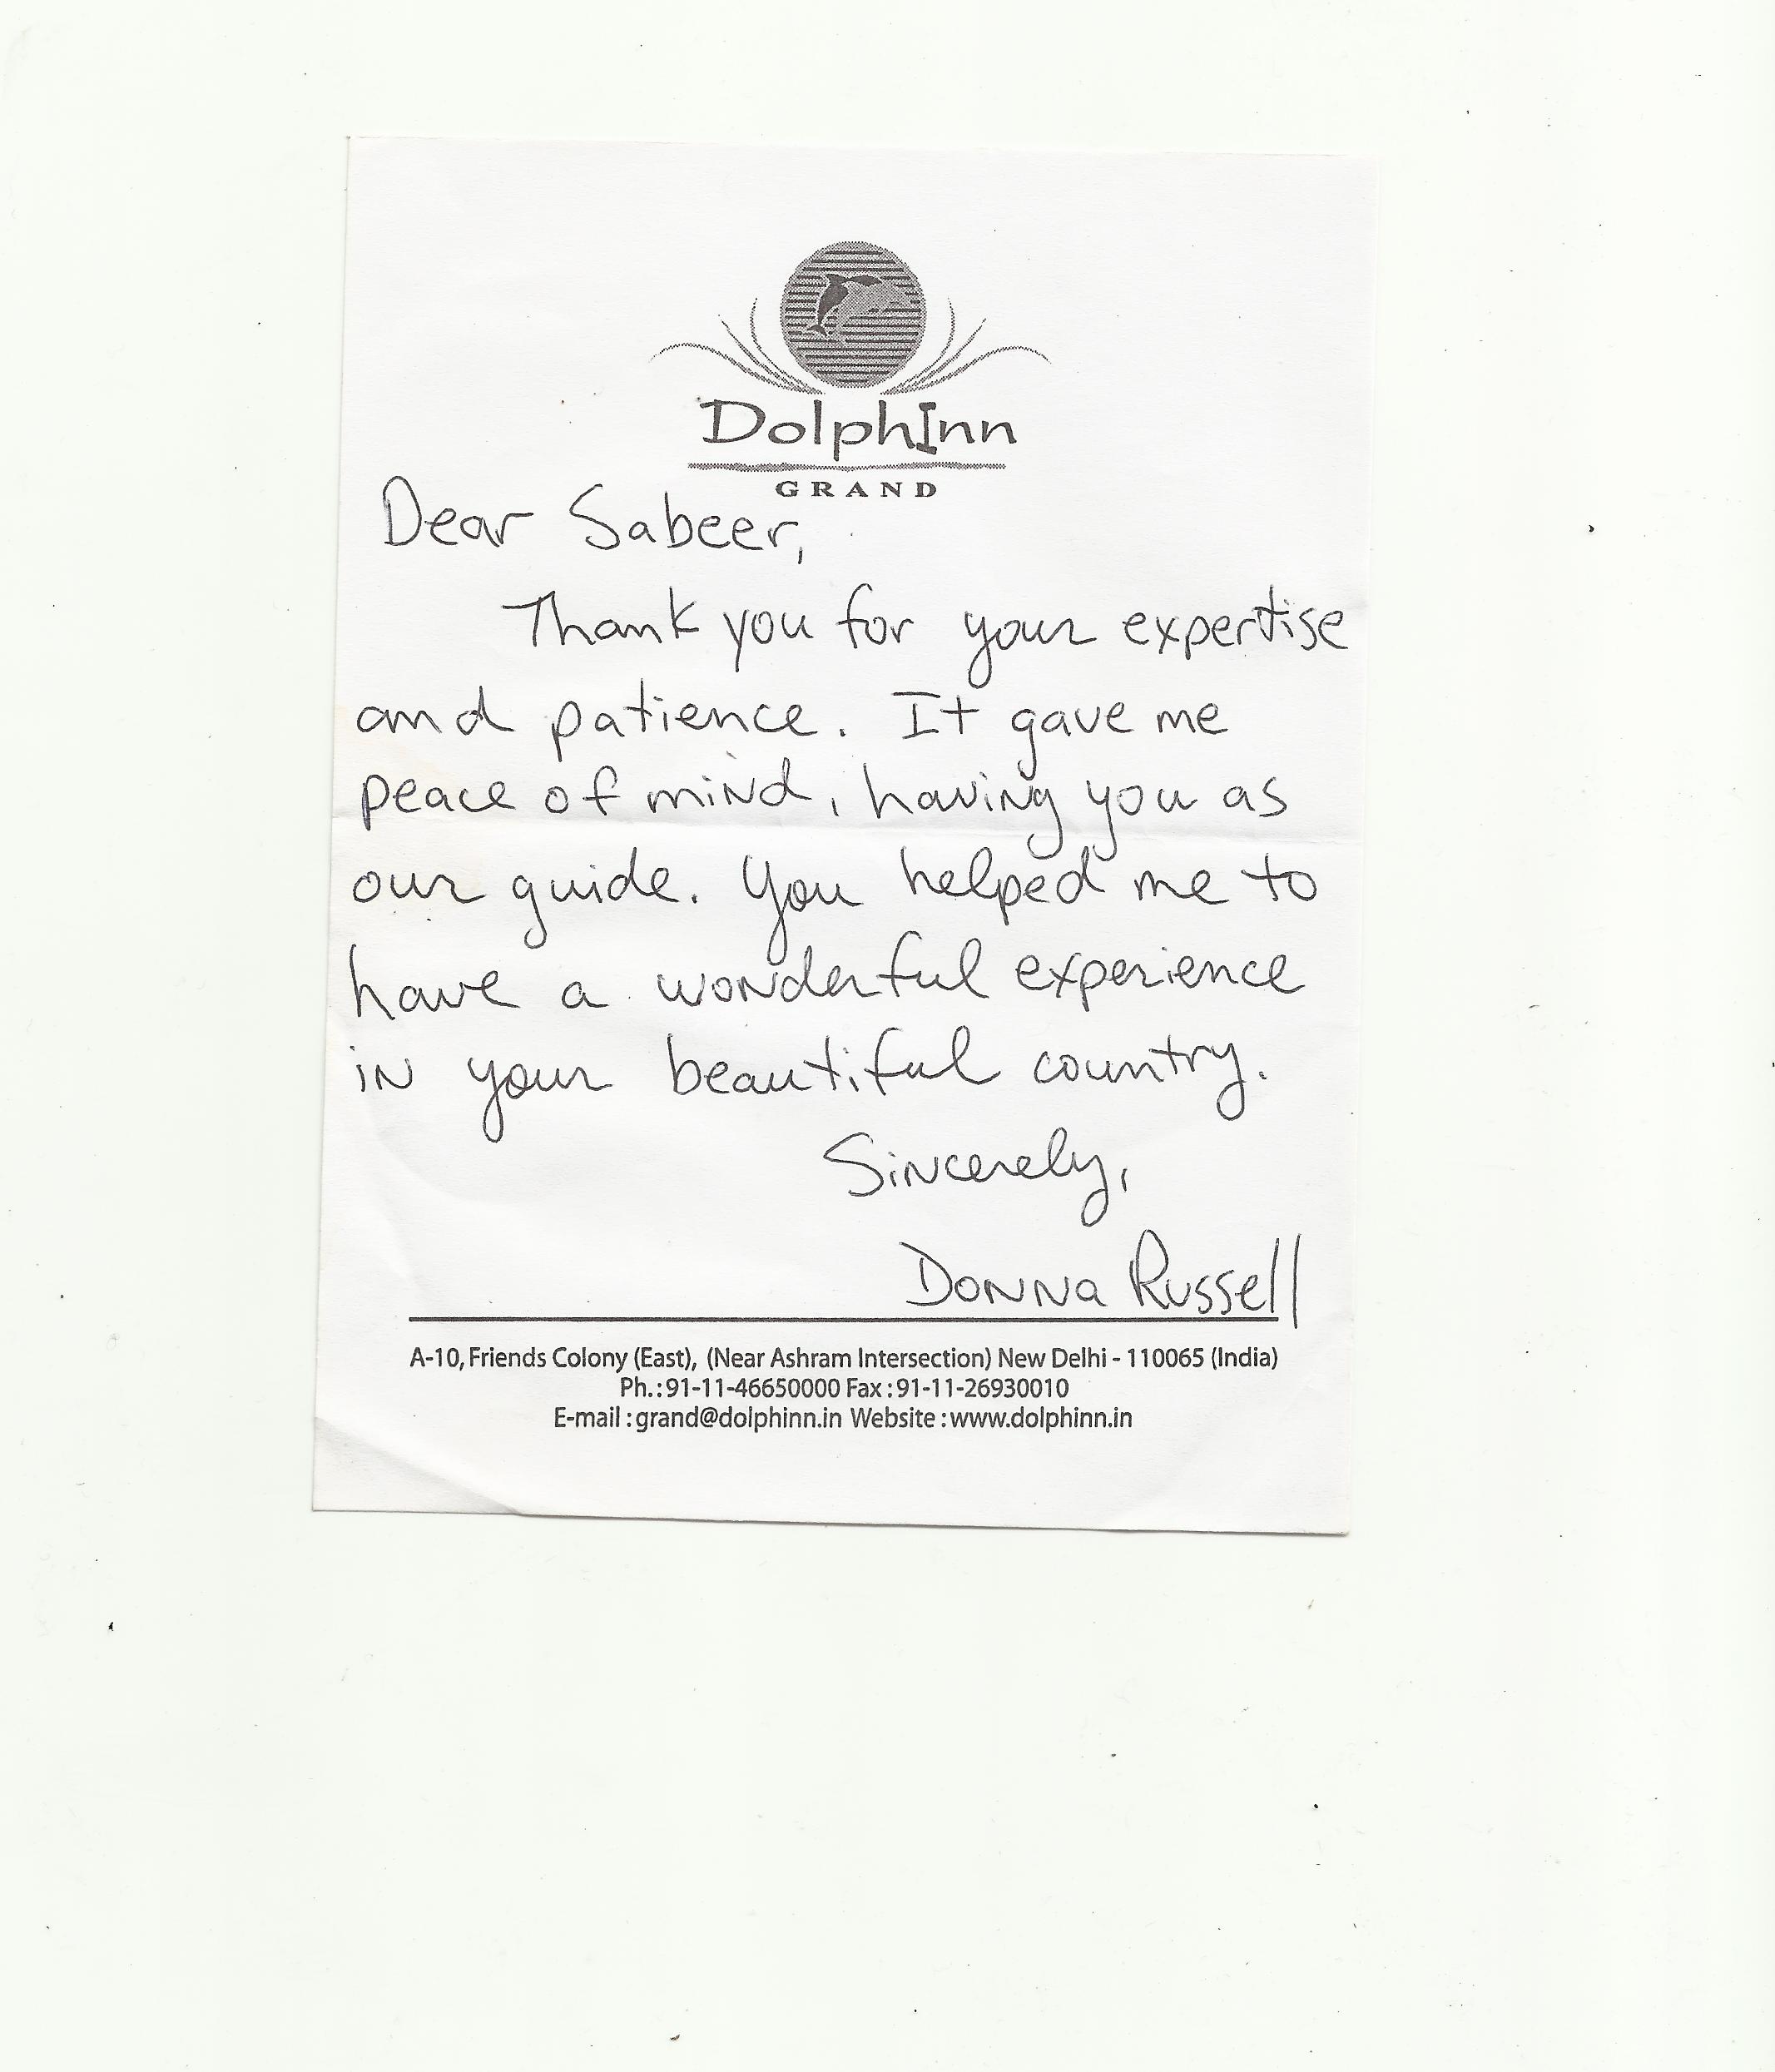 DolphInn
GRAND
Dear Sabeer,
Thank you for your expertise
and patience. It gave me
peace of mind, having you as
our guide. You helped me to
have a wonderful experience
in your beautiful country.
Sincerely,
Donna Russell
A-10, Friends Colony (East), (Near Ashram Intersection) New Delhi - 110065 (India)
Ph.: 91-11-46650000 Fax : 91-11-26930010
E-mail : grand@dolphinn.in Website : www.dolphinn.in